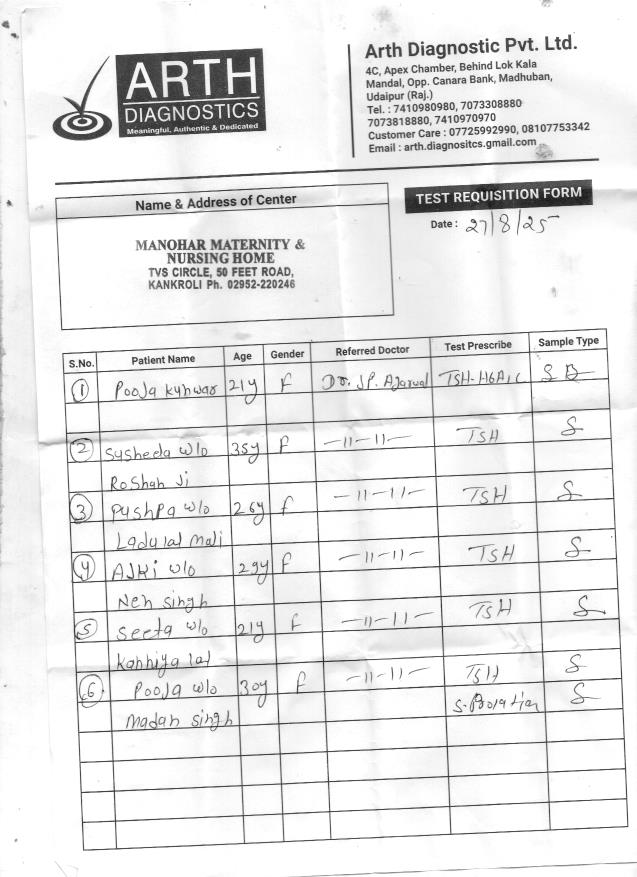 ARTH
DIAGNOSTICS
Meaningful, Authentic & Dedicated
Arth Diagnostic Pvt. Ltd.
4C, Apex Chamber, Behind Lok Kala
Mandal, Opp. Canara Bank, Madhuban,
Udaipur (Raj.)
Tel. : 7410980980, 7073308880
7073818880, 7410970970
Customer Care : 07725992990, 08107753342
Email : arth.diagnositcs.gmail.com
Name & Address of Center
TEST REQUISITION FORM
Date : 27/8/25
MANOHAR MATERNITY &
NURSING HOME
TVS CIRCLE, 50 FEET ROAD,
KANKROLI Ph. 02952-220246
S.No. Patient Name Age Gender Referred Doctor Test Prescribe Sample Type
1 Pooja Kunwar 21y F Dr. J.P. Agarwal TSH-HbA1C S B
2 Susheela w/o 35y F -11-11- TSH S
Roshan Ji
3 Pushpa w/o 26y F -11-11- TSH S
Ladu lal mali
4 AJKi w/o 29y F -11-11- TSH S
Neh singh
5 Seeta w/o 21y F -11-11- TSH S
Kanhiya lal
6 Pooja w/o 30y F -11-11- TSH S
madan singh S-Prolatien S